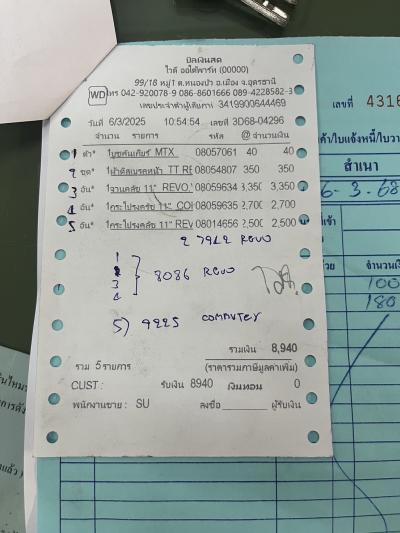 บิลเงินสด
ไวดี ออโต้พาร์ท (00000)
99/18 หมู่1 ต.หนองบัว อ.เมือง จ.อุดรธานี
WD โทร 042-920078-9 086-8601666 089-4228582-3
เลขประจำตัวผู้เสียภาษี 3419900644469
วันที่ 6/3/2025 10:54:54 เลขที่ 3D68-04296
จำนวน รายการ รหัส @ จำนวนเงิน
1 ตัว* 1 บูชคันเกียร์ MTX 08057061 40 40
2 ชุด* 1 ผ้าดิสเบรคหน้า TT RE 08054807 350 350
3 อัน* 1 จานคลัช 11" REVO 08059634 3,350 3,350
4 อัน* 1 กระโปรงคลัช 11" CO 08059635 2,700 2,700
5 อัน* 1 กระโปรงคลัช 11" REV 08014656 2,500 2,500
2 7942 REVO
1
2
3
4
8086 REVO
5) 9225 COMMUTER
รวมเงิน 8,940
รวม 5 รายการ (ราคารวมภาษีมูลค่าเพิ่ม)
CUST : รับเงิน 8940 เงินทอน 0
พนักงานขาย : SU ลงชื่อ ผู้รับเงิน
เลขที่ 4316
ค้า/ใบแจ้งหนี้/ใบวา
สำเนา
6-3-68
จำนวนเงิน
100
180